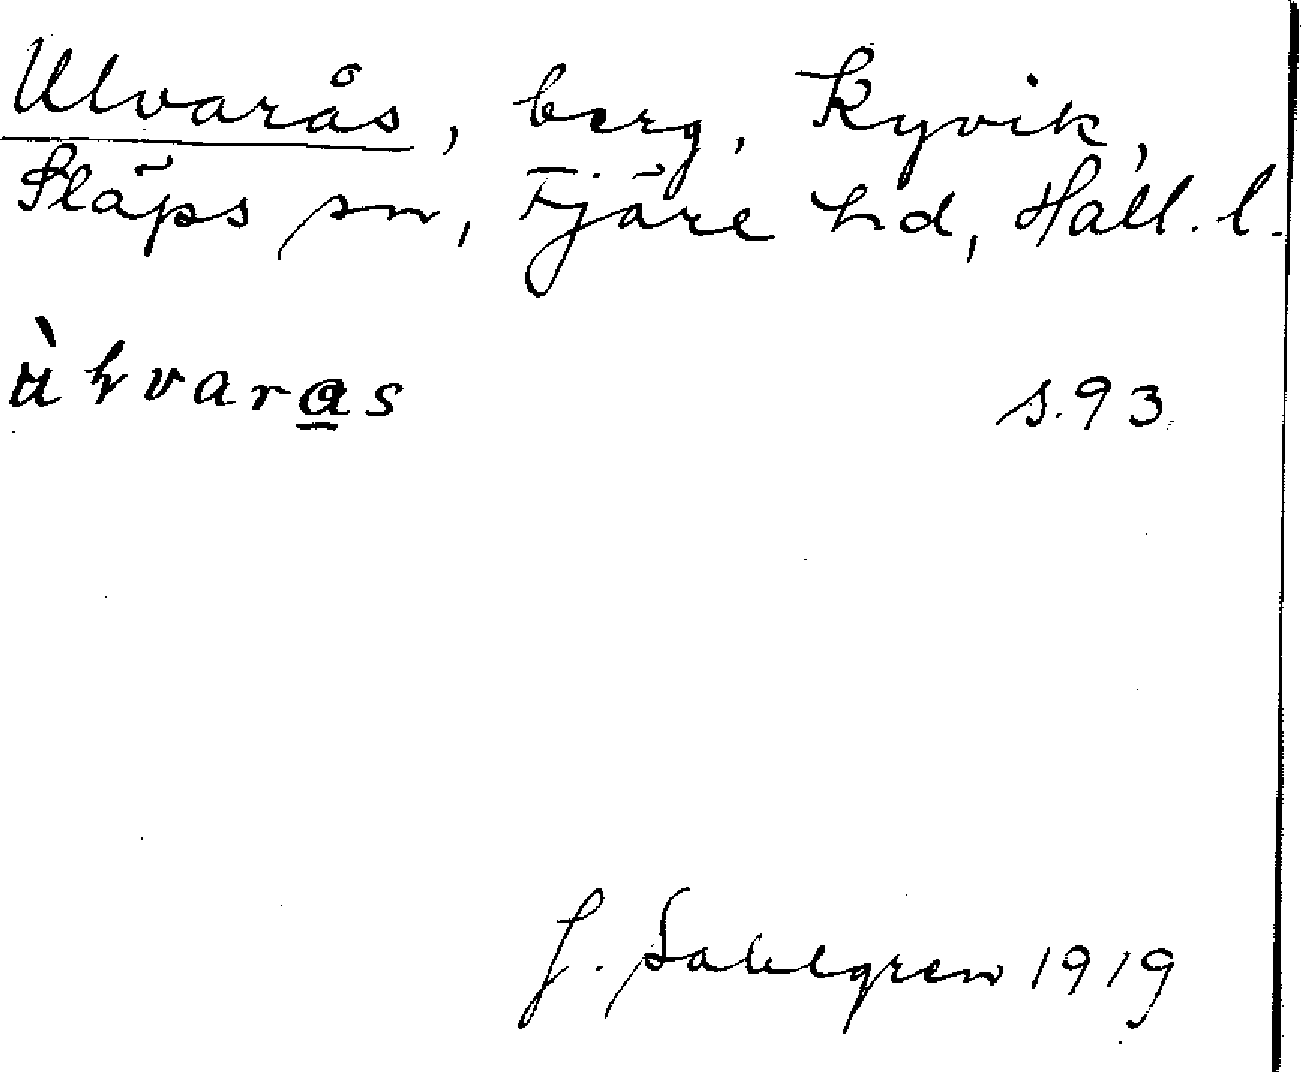 Ulvarås, berg, Kyvik,
Släps sn, Fjäre hd, Hall. l.
s. 93
J. Sahlgren 1919